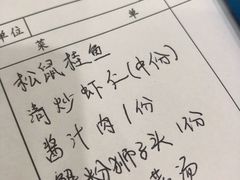 单位
菜 单
松鼠桂鱼
清炒虾仁(中份)
酱汁肉1份
蟹粉狮子头1份